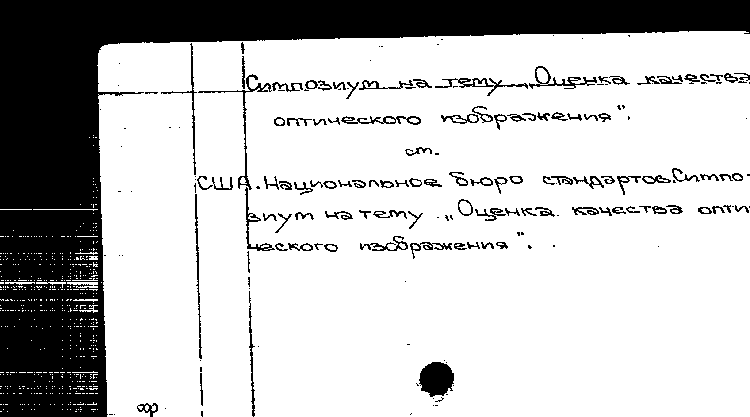 Симпозиум на тему „Оценка качества
оптического изображения".
см.
США. Национальное бюро стандартов. Симпо-
зиум на тему „Оценка качества опти
ческого изображения".